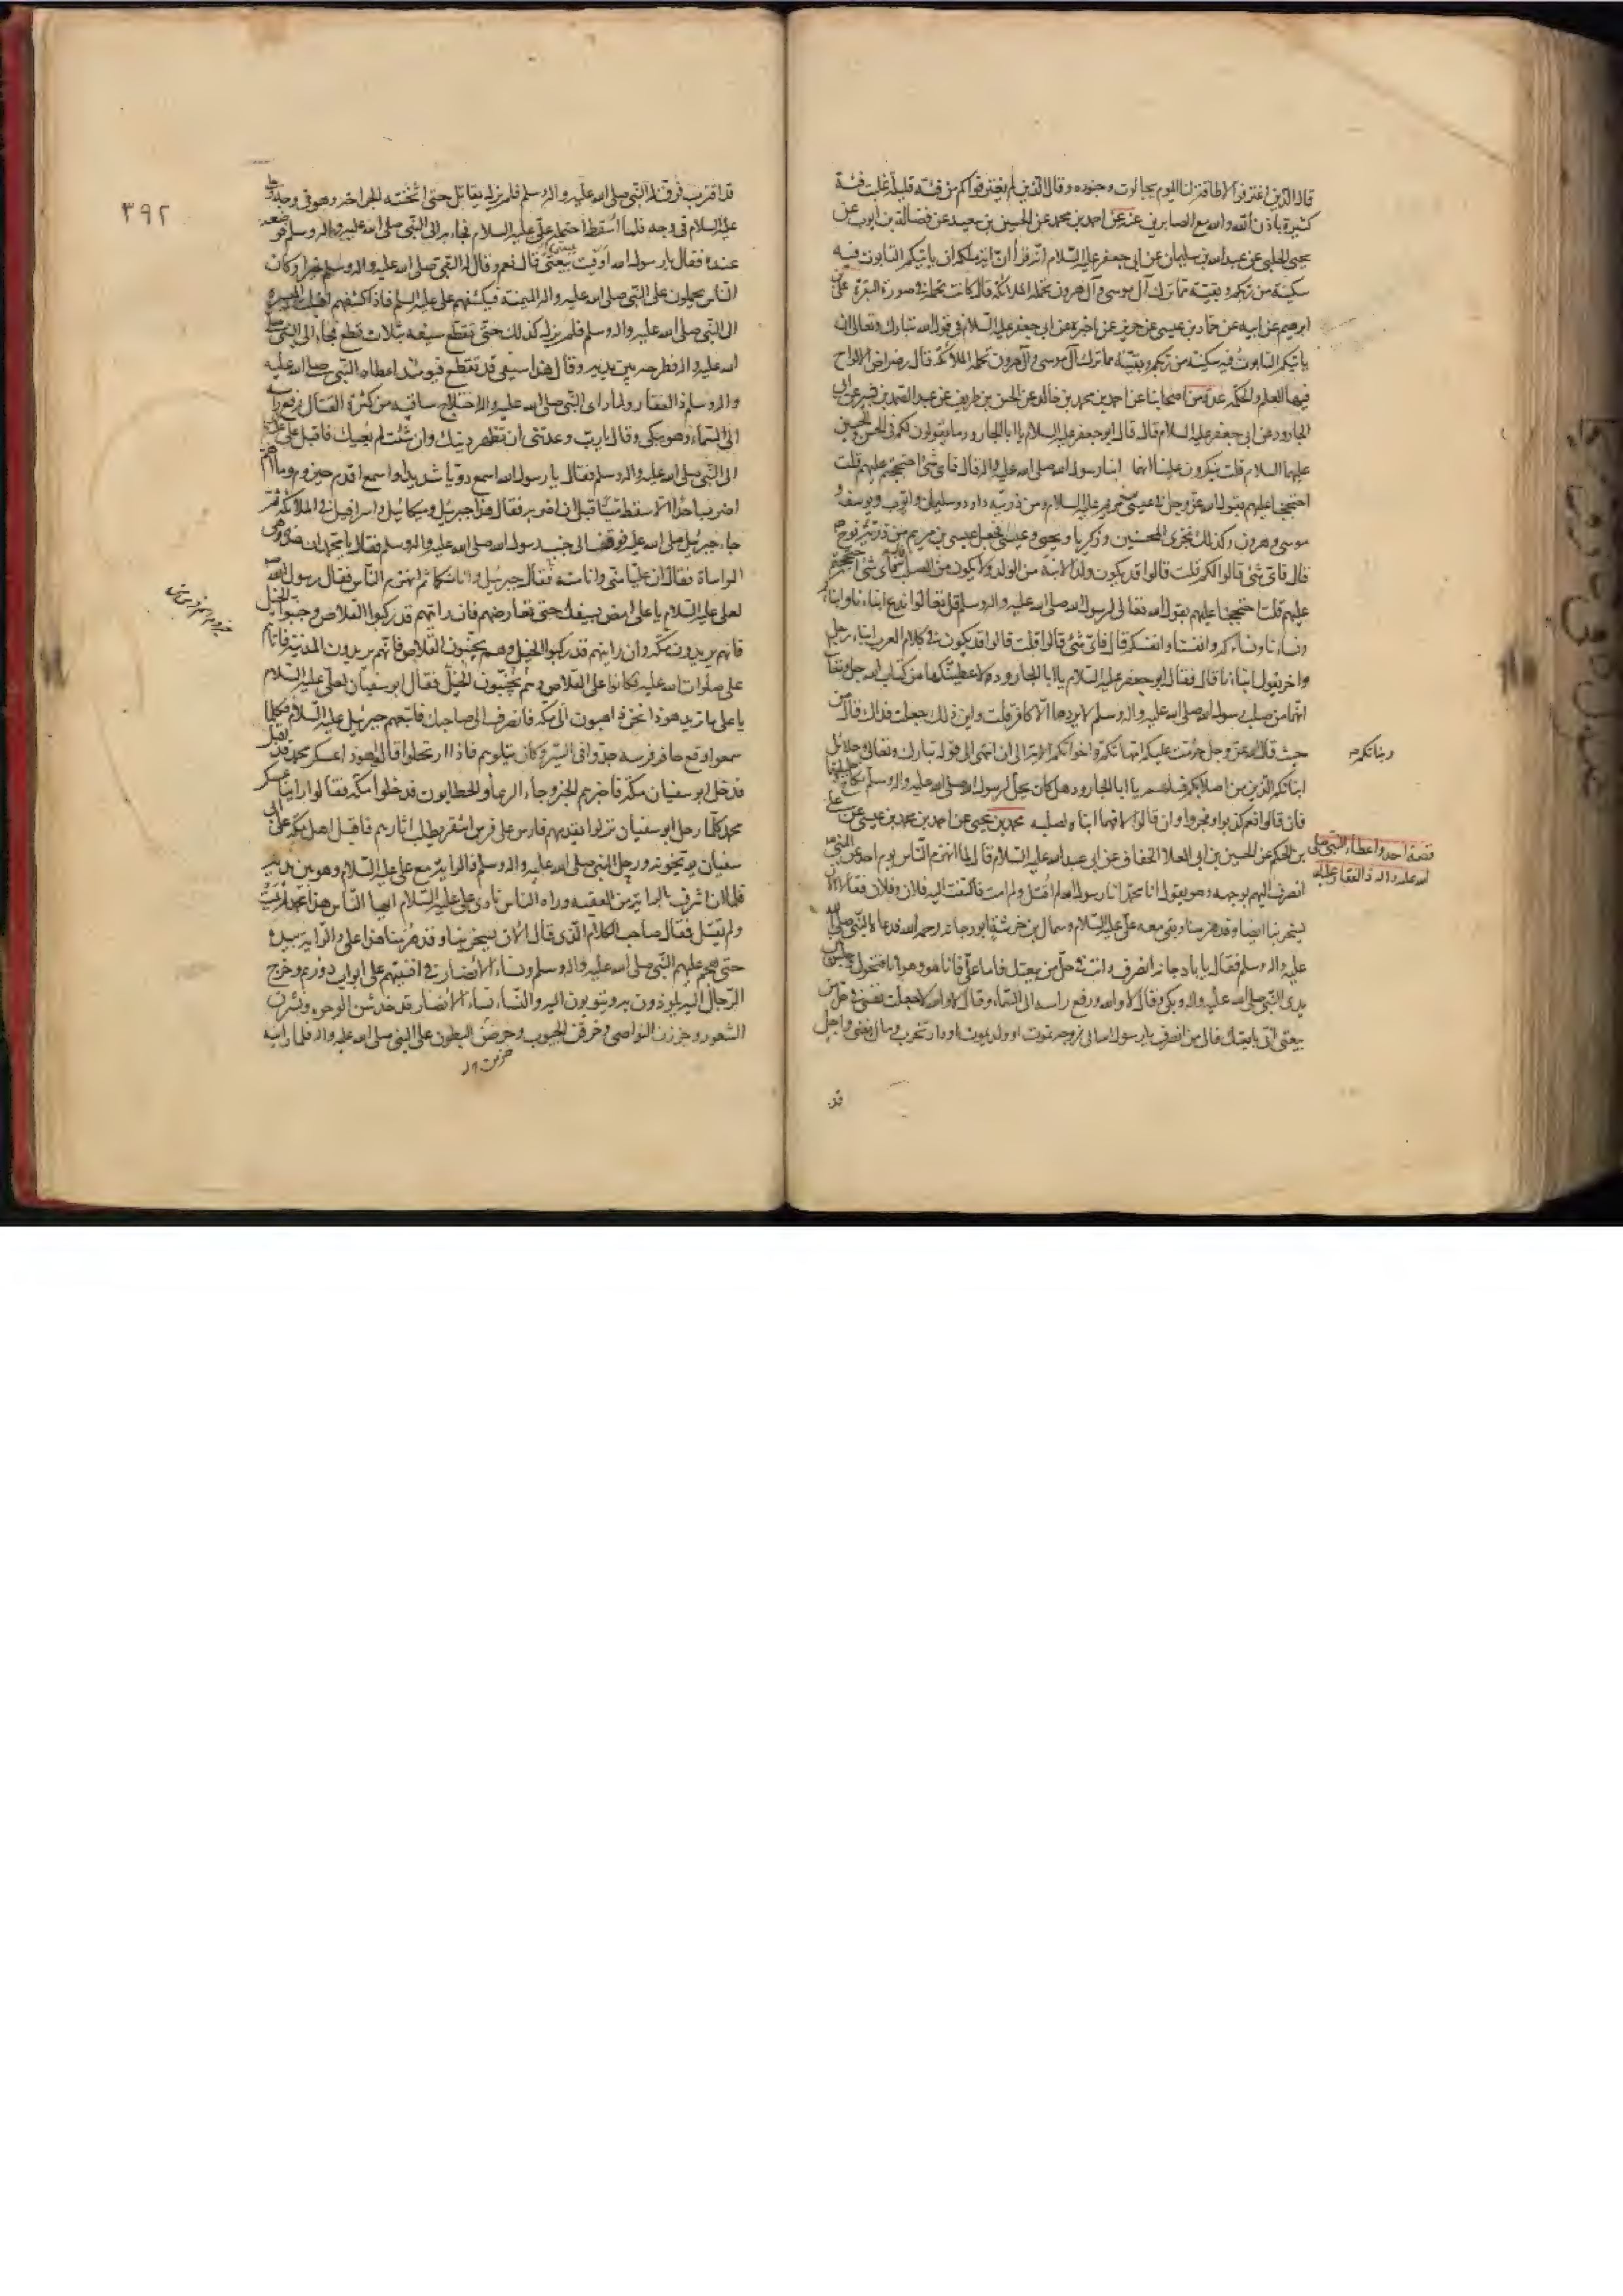 قال الذين اغترفوا لا طاقة لنا اليوم بجالوت وجنوده وقال الذين لم يغترفوا كم من فئة قليلة غلبت فئة
كثيرة باذن الله والله مع الصابرين عنه عن احمد بن محمد عن الحسين بن سعيد عن فضالة بن ايوب عن
يحيى الحلبي عن عبد الله بن سليمان عن ابي جعفر عليه السلام انه قرأ ان اية ملكه ان ياتيكم التابوت فيه
سكينة من ربكم وبقية مما ترك آل موسى وآل هرون تحمله الملائكة قال كانت تحمله في صورة البقرة علي بن
ابرهيم عن ابيه عن حماد بن عيسى عن حريز عن اخبره عن ابي جعفر عليه السلام في قول الله تبارك وتعالى ان
ياتيكم التابوت فيه سكينة من ربكم وبقية مما ترك آل موسى وآل هرون تحمله الملائكة قال رضراض الالواح
فيها العلم والحكمة عدة من اصحابنا عن احمد بن محمد بن خالد عن الحسن بن ظريف عن عبد الصمد بن بشير عن ابي
الجارود عن ابي جعفر عليه السلام قال قال ابو جعفر عليه السلام يا ابا الجارود ما يقولون لكم في الحسن والحسين
عليهما السلام قلت ينكرون علينا انهما ابنا رسول الله صلى الله عليه واله قال فاي شئ احتججتم عليهم قلت
احتججنا عليهم بقول الله عز وجل في عيسى بن مريم عليه السلام ومن ذريته داود وسليمان وايوب ويوسف و
موسى وهرون وكذلك نجزي المحسنين وزكريا ويحيى وعيسى فجعل عيسى بن مريم من ذرية نوح ع
قال فاي شئ قالوا لكم قلت قالوا قد يكون ولد الابنة من الولد ولا يكون من الصلب قال فاي شئ احتججتم
عليهم قلت احتججنا عليهم بقول الله تعالى لرسول الله صلى الله عليه واله وسلم قل تعالوا ندع ابناءنا وابناءكم
ونساءنا ونساءكم وانفسنا وانفسكم قال فاي شئ قالوا قلت قالوا قد يكون في كلام العرب ابناء رجل
واخر يقول ابناءنا قال فقال ابو جعفر عليه السلام يا ابا الجارود لاعطينكها من كتاب الله جل وتعالى
انهما من صلب رسول الله صلى الله عليه واله وسلم لا يردها الا كافر قلت واين ذلك جعلت فداك قال من
حيث قال الله عز وجل حرمت عليكم امهاتكم واخواتكم الاية الى ان انتهى الى قوله تبارك وتعالى وحلائل
وبناتكم
ابنائكم الذين من اصلابكم فسلهم يا ابا الجارود هل كان يحل لرسول الله صلى الله عليه واله وسلم نكاح حليلتهما
فان قالوا نعم كذبوا وفجروا وان قالوا لا فهما ابناه لصلبه محمد بن يحيى عن احمد بن محمد بن عيسى عن علي
قصة احد واعطاء النبي صلى
الله عليه واله ذا الفقار
بن الحكم عن الحسين بن ابي العلا الخفاف عن ابي عبد الله عليه السلام قال لما انهزم الناس يوم احد عن النبي
انصرف اليهم بوجهه وهو يقول انا محمد انا رسول الله لم اقتل ولم امت فالتفت اليه فلان وفلان فقالا الان
يسخر بنا ايضا وقد هزمنا وبقي معه علي عليه السلام وسماك بن خرشة ابو دجانة رحمه الله فدعاه النبي صلى الله
عليه واله وسلم فقال يا با دجانة انصرف وانت في حل من بيعتك فاما علي فانا هو وهو انا فتحول وجلس بين
يدي النبي صلى الله عليه واله وبكى وقال لا والله ورفع راسه الى السماء وقال لا والله لا جعلت نفسي في حل من
بيعتي اني بايعتك فالى من انصرف يا رسول الله الى زوجة تموت او ولد يموت او دار تخرب ومال يفنى واجل
قد
٣٩٢
قد اقترب فرق له النبي صلى الله عليه واله وسلم فلم يزل يقاتل حتى اثخنته الجراحة وهو في وجه وعلي
عليه السلام في وجه فلما اسقط احتمله علي عليه السلام فجاء به الى النبي صلى الله عليه واله وسلم فوضعه
عنده فقال يا رسول الله اوفيت ببيعتي قال نعم وقال له النبي صلى الله عليه واله وسلم خيرا وكان
الناس يحملون على النبي صلى الله عليه واله الميمنة فيكشفهم علي عليه السلم فاذا كشفهم اقبلت الميسرة
الى النبي صلى الله عليه واله وسلم فلم يزل كذلك حتى تقطع سيفه بثلاث قطع فجاء الى النبي صلى
الله عليه واله فطرحه بين يديه وقال هذا سيفي قد تقطع فيومئذ اعطاه النبي صلى الله عليه
واله وسلم ذا الفقار ولما راى النبي صلى الله عليه واله اختلاج ساقيه من كثرة القتال رفع راسه
الى السماء وهو يبكي وقال يا رب وعدتني ان تظهر دينك وان شئت لم يعيك فاقبل علي عليه السلم
الى النبي صلى الله عليه واله وسلم فقال يا رسول الله اسمع دويا شديدا واسمع اقدم حيزوم وما اهم
اضرب احدا الا سقط ميتا قبل ان اضربه فقال هذا جبرئيل وميكائيل واسرافيل في الملائكة ثم
جاء جبرئيل صلى الله عليه فوقف الى جنب رسول الله صلى الله عليه واله وسلم فقال يا محمد ان هذه لهي
المواساة فقال ان عليا مني وانا منه فقال جبرئيل وانا منكما ثم انهزم الناس فقال رسول الله ص
لعلي عليه السلام يا علي امض بسيفك حتى تعارضهم فان رايتهم قد ركبوا القلاص وجنبوا الخيل
فانهم يريدون مكة وان رايتهم قد ركبوا الخيل وهم يجنبون القلاص فانهم يريدون المدينة فاتاهم
علي صلوات الله عليه فكانوا على القلاص وهم يجنبون الخيل فقال ابو سفيان لعلي عليه السلام
يا علي ما تريد هوذا نحن ذاهبون الى مكة فانصرف الى صاحبك فاتبعهم جبرئيل عليه السلام فكلما
سمعوا وقع حافر فرسه جدوا في السير وكان يتلوهم فاذا ارتحلوا قال هوذا عسكر محمد قد اقبل
فدخل ابو سفيان مكة فاخبرهم الخبر وجاء الرعاة والحطابون فدخلوا مكة فقالوا راينا عسكر
محمد كلما رحل ابو سفيان نزلوا يقدمهم فارس على فرس اشقر يطلب اثارهم فاقبل اهل مكة على ابي
سفيان يوبخونه ورحل النبي صلى الله عليه واله وسلم والراية مع علي عليه السلام وهو بين يديه
فلما ان اشرف بالراية من العقبة وراه الناس نادى علي عليه السلام ايها الناس هذا محمد لم يمت
ولم يقتل فقال صاحب الكلام الذي قال الان يسخر بنا وقد هزمنا هذا علي والراية بيده
حتى هجم عليهم النبي صلى الله عليه واله وسلم ونساء الانصار في افنيتهم على ابواب دورهم وخرج
الرجال اليه يلوذون به ويتوبون اليه والنساء نساء الانصار قد خدشن الوجوه ونشرن
الشعور وجززن النواصي وخرقن الجيوب وحرضن البطون على النبي صلى الله عليه واله فلما راينه